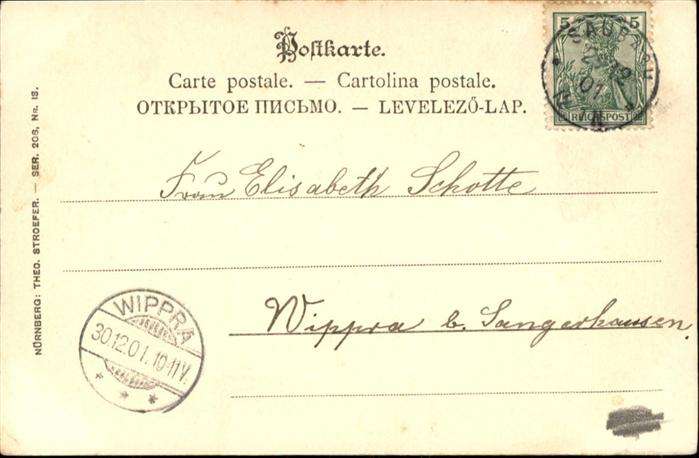 Postkarte.
Carte postale. — Cartolina postale.
ОТКРЫТОЕ ПИСЬМО. — LEVELEZŐ-LAP.
5 5
REICHSPOST
01
Frau Elisabeth Schotte
Wippra b. Sangerhausen.
WIPPRA
30.12.01. 10-11V.
* * *
NÜRNBERG: THEO. STROEFER. — SER. 206, No. 13.